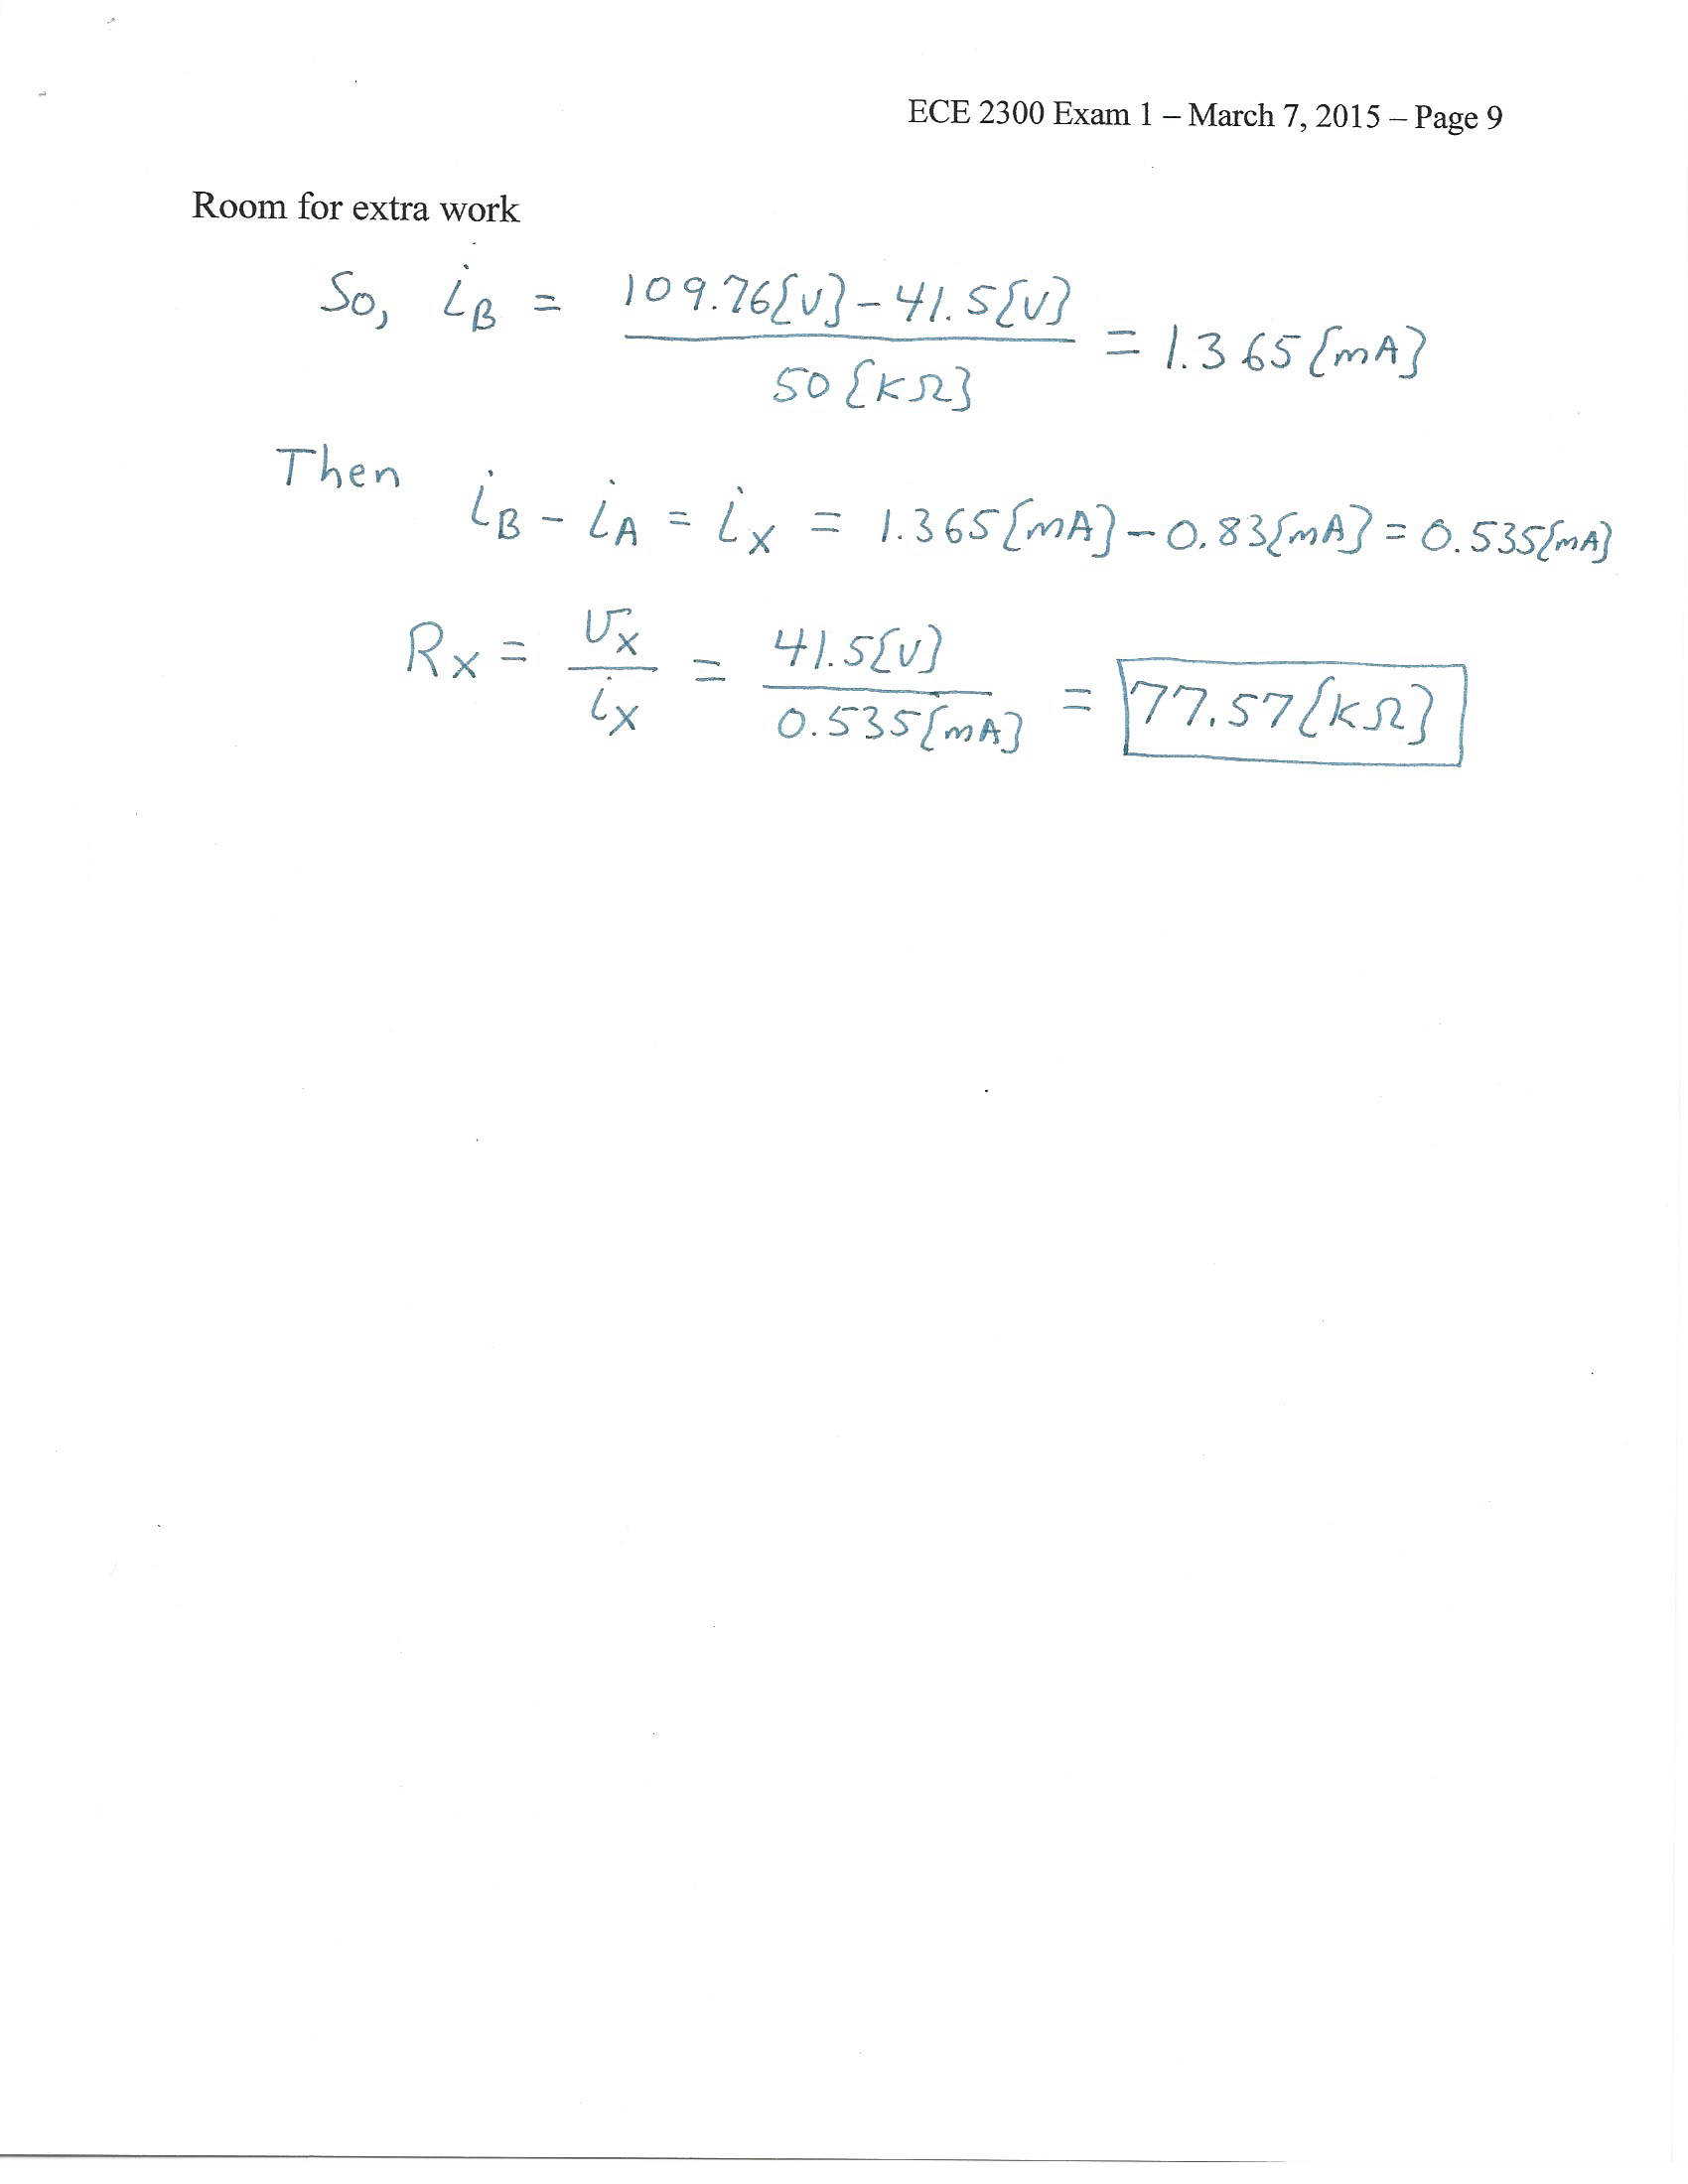 ECE 2300 Exam 1 – March 7, 2015 – Page 9
Room for extra work
So, i_B = (109.76[V] - 41.5[V]) / 50[kΩ] = 1.365[mA]
Then
i_B - i_A = i_X = 1.365[mA] - 0.83[mA] = 0.535[mA]
R_X = v_X / i_X = 41.5[V] / 0.535[mA] = 77.57[kΩ]